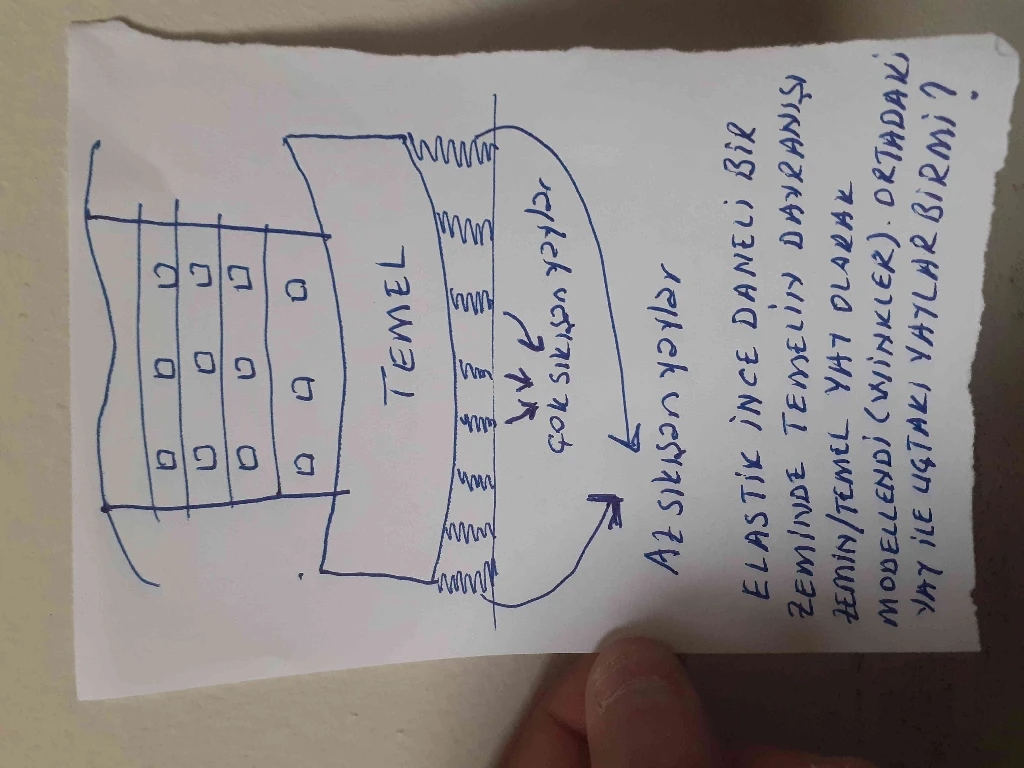 TEMEL
çok sıkışan yaylar
Az sıkışan yaylar
ELASTİK İNCE DANELİ BİR
ZEMİNDE TEMELİN DAVRANIŞI
ZEMİN/TEMEL YAY OLARAK
MODELLENDİ (WİNKLER). ORTADAKİ
YAY İLE UÇTAKİ YAYLAR BİRMİ?